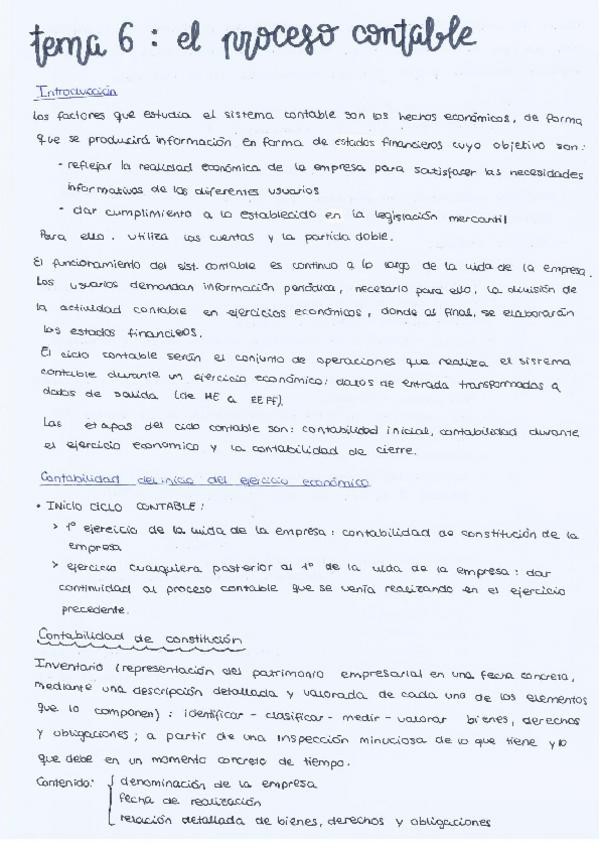 tema 6: el proceso contable
Introducción
Los factores que estudia el sistema contable son los hechos económicos, de forma
que se producirá información en forma de estados financieros cuyo objetivo son:
- reflejar la realidad económica de la empresa para satisfacer las necesidades
informativas de los diferentes usuarios
- dar cumplimiento a lo establecido en la legislación mercantil
Para ello, utiliza las cuentas y la partida doble.
El funcionamiento del sist. contable es continuo a lo largo de la vida de la empresa.
Los usuarios demandan información periódica, necesario para ello, la división de
la actividad contable en ejercicios económicos, donde al final, se elaborarán
los estados financieros.
El ciclo contable serún el conjunto de operaciones que realiza el sistema
contable durante un ejercicio económico: datos de entrada transformados a
datos de salida (de HE a EEFF).
Las etapas del ciclo contable son: contabilidad inicial, contabilidad durante
el ejercicio economico y la contabilidad de cierre.
Contabilidad del inicio del ejercicio económico
• INICIO CICLO CONTABLE:
> 1º ejercicio de la vida de la empresa: contabilidad de constitución de la
empresa
> ejercicio cualquiera posterior al 1º de la vida de la empresa: dar
continuidad al proceso contable que se venía realizando en el ejercicio
precedente.
Contabilidad de constitución
Inventario (representación del patrimonio empresarial en una fecha concreta,
mediante una descripción detallada y valorada de cada uno de los elementos
que lo componen): identificar - clasificar - medir - valorar bienes, derechos
y obligaciones; a partir de una inspección minuciosa de lo que tiene y/o
que debe en un momento concreto de tiempo.
Contenido: denominación de la empresa
fecha de realización
relación detallada de bienes, derechos y obligaciones